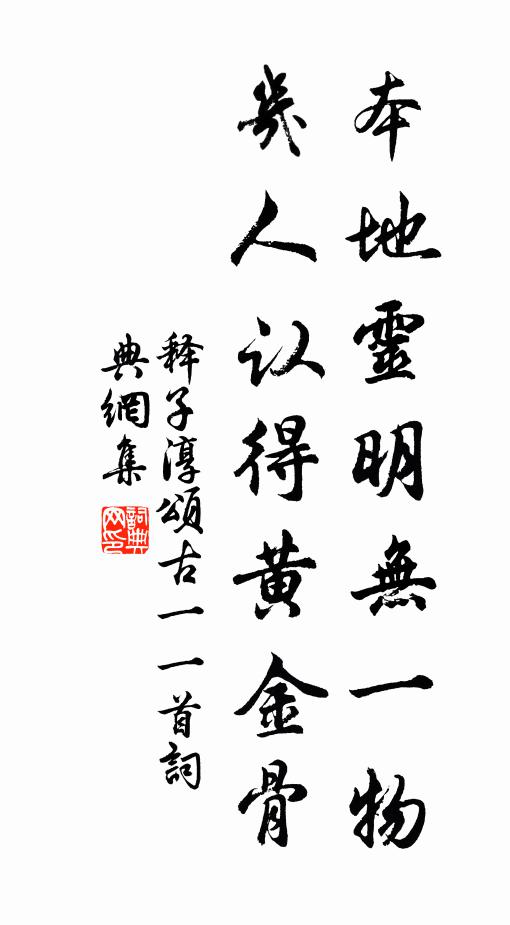 本地靈明無一物
幾人认得黃金骨
释子淳頌古一一首詞
典網集
詞典网印